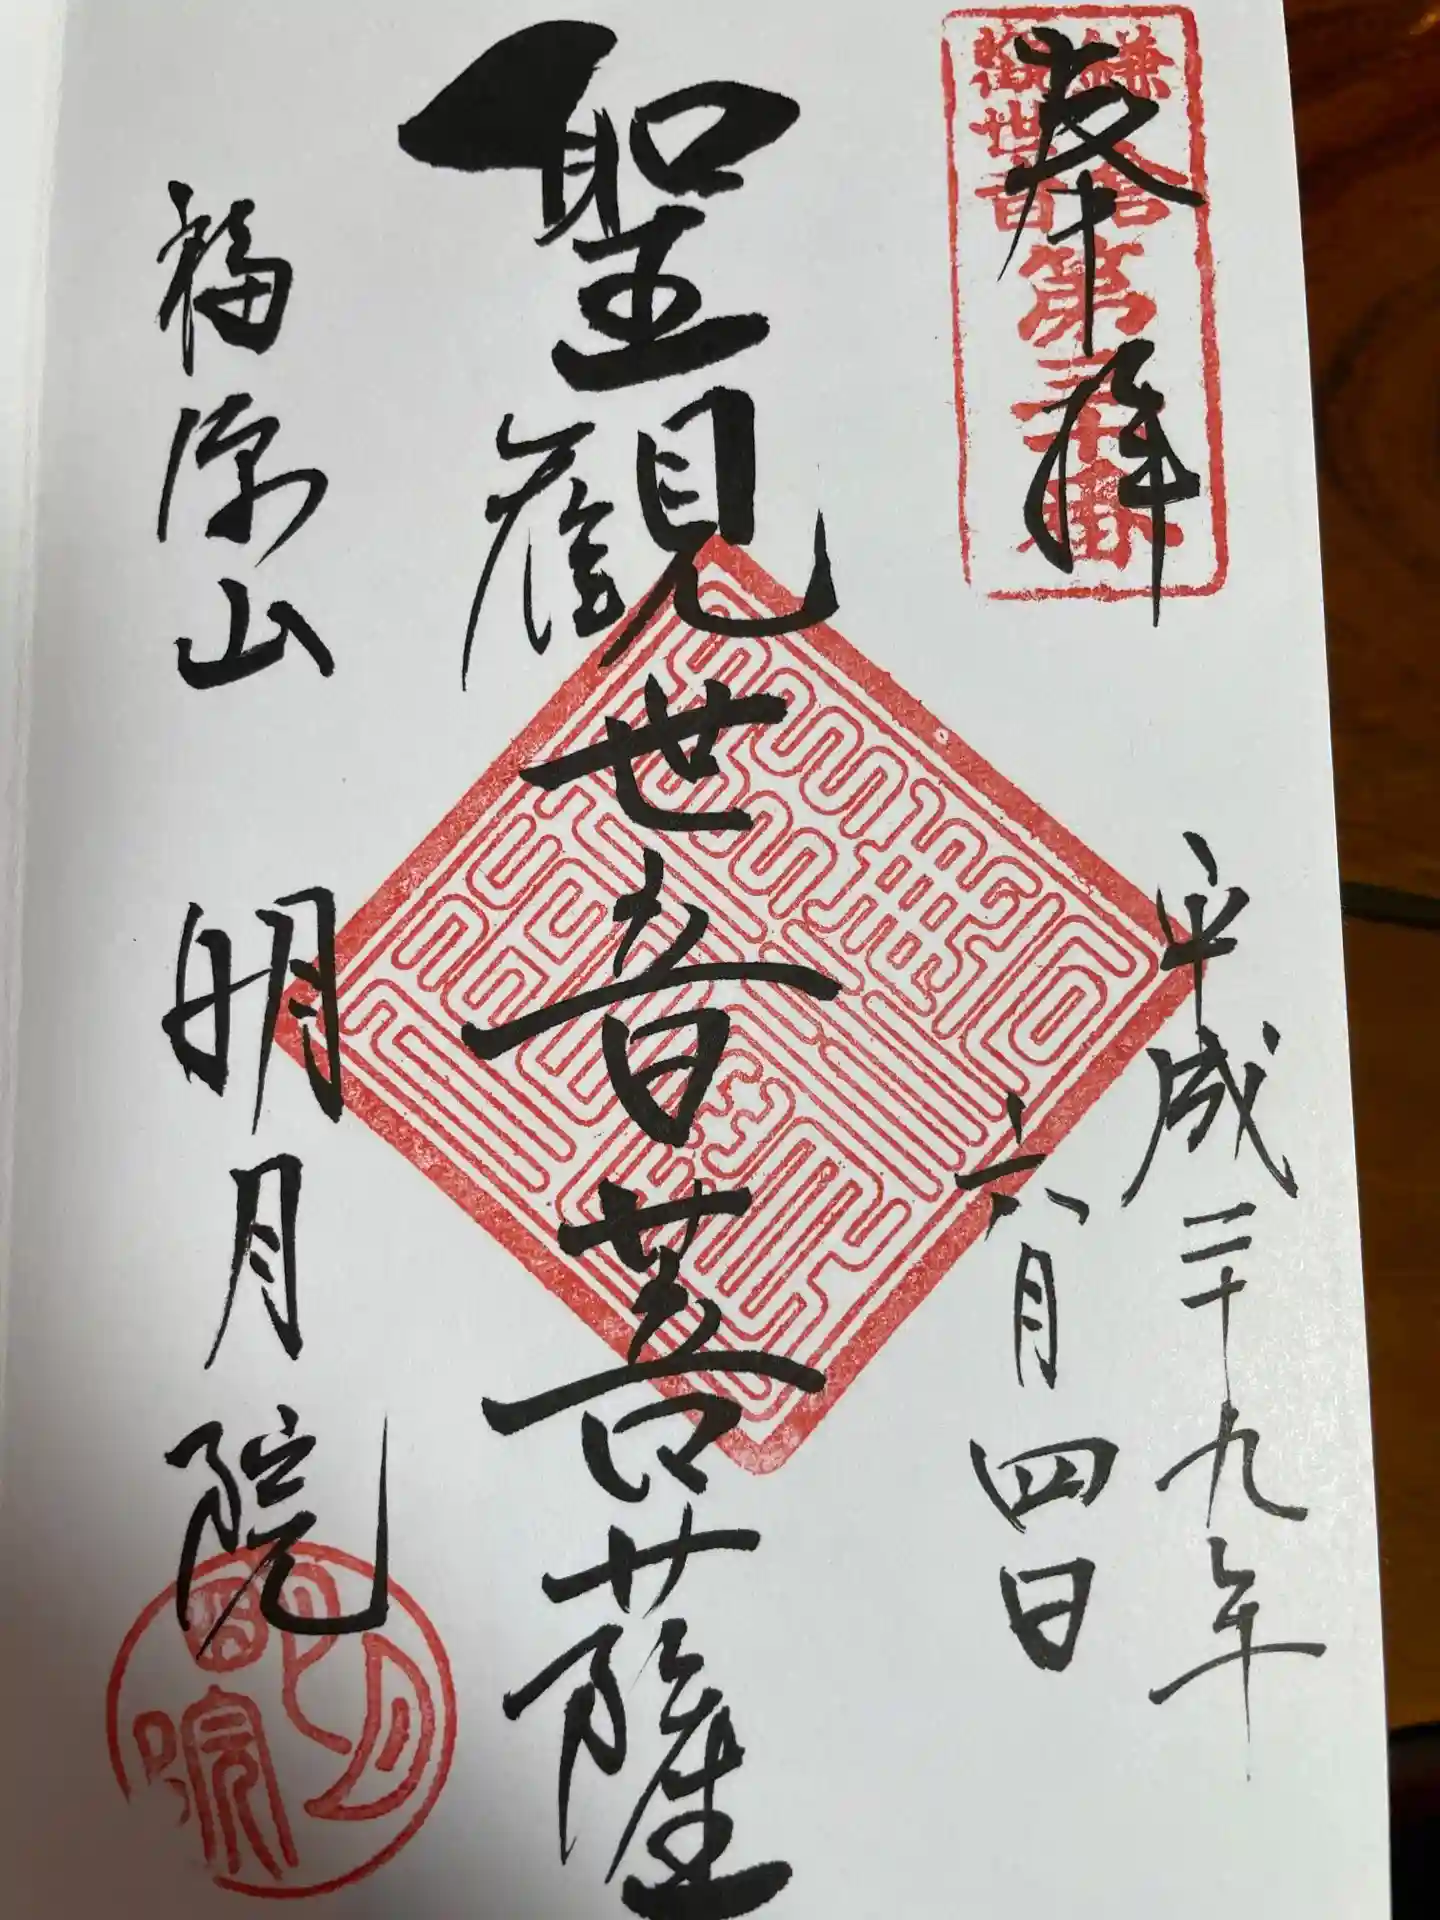 奉拝
鎌倉
觀世音
第三十番
平成二十九年
六月四日
聖觀世音菩薩
福源山
明月院